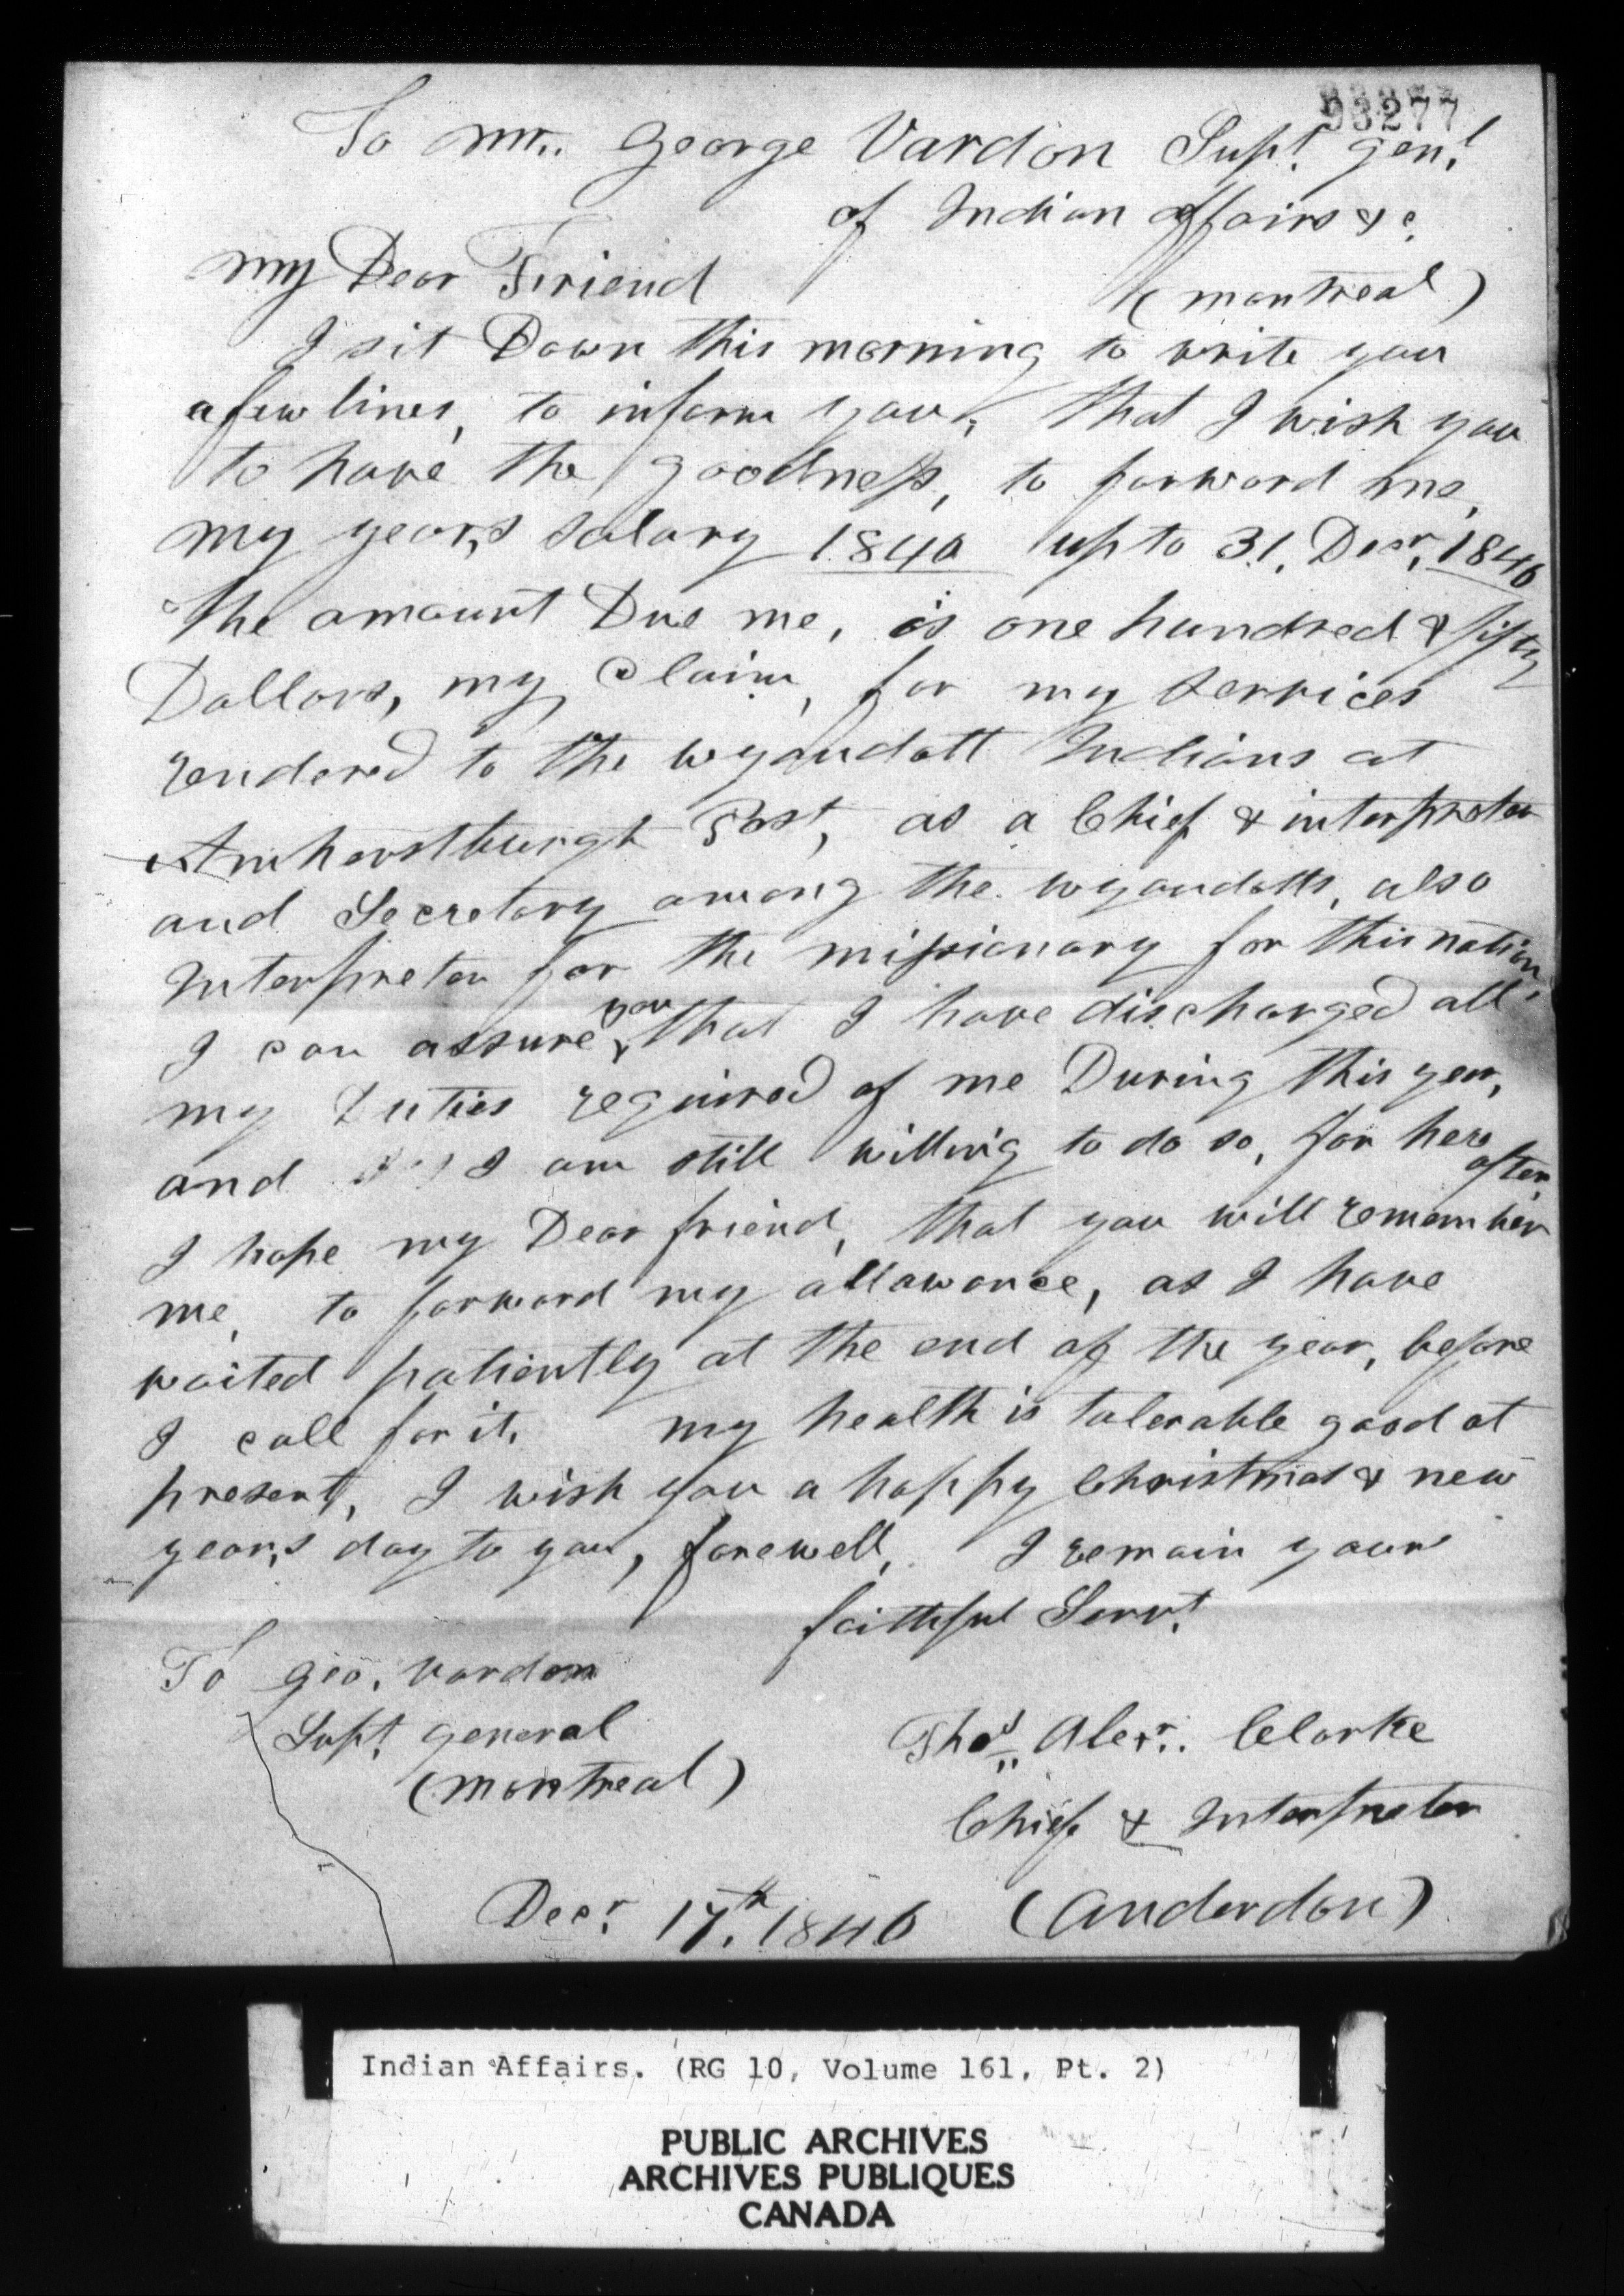 93277
To Mr. George Vardon Supt. Gen.l
of Indian Affairs &c.
My Dear Friend
(Montreal)
I sit Down this morning to write you
a few lines, to inform you, that I wish you
to have the goodness, to forward me,
my year,s salary 1846 up to 31, Decr, 1846
The amount Due me, is one hundred & fifty
Dollars, my claim, for my services
rendered to the wyandott Indians at
Amherstburgh Post, as a Chief & interpreter
and Secretary among the wyandotts, also
Interpreter for the missionary for this nation,
I can assure you that I have discharged all
my Duties required of me During this year,
and I am still willing to do so, for here
after,
I hope my Dear friend, that you will remember
me, to forward my allawance, as I have
waited patiently at the end of the year, before
I call for it. my health is tolerable good at
present, I wish you a happy Christmas & new
year,s day to you, farewell, I remain your
faithful Servt.
To Geo. Vardon
Supt. General
(Montreal)
Thos. Alexr. Clarke
Chief & Interpreter
Decr. 17th. 1846 (Anderdon)
Indian Affairs. (RG 10, Volume 161, Pt. 2)
PUBLIC ARCHIVES
ARCHIVES PUBLIQUES
CANADA